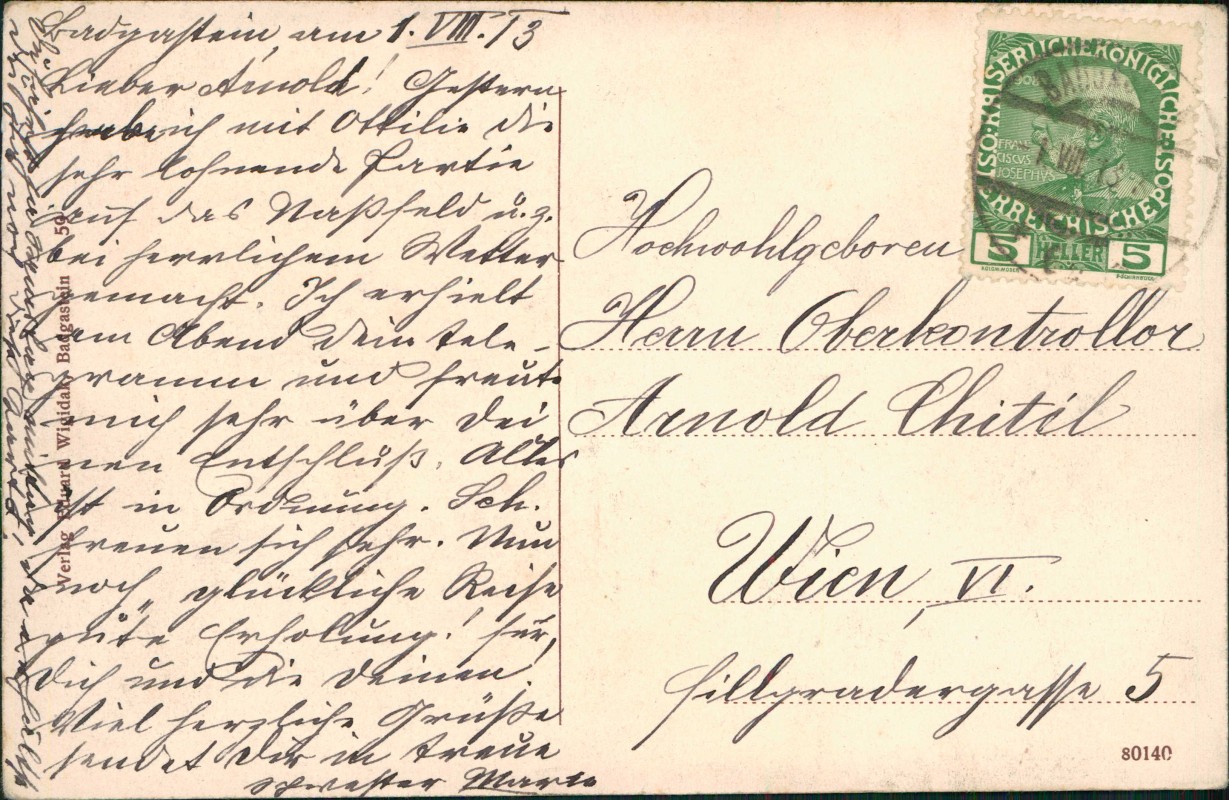 Badgastein, am 1. VIII. 13
Lieber Arnold! Gestern
habe ich mit Ottilie die
sehr lohnende Partie
auf das Naßfeld u. z.
bei herrlichem Wetter
gemacht. Ich erhielt
am Abend dein Tele-
gramm und freute
mich sehr über dei
nen Entschluß. Alles
ist in Ordnung. Sch.
freuen sich sehr. Nun
noch „ glückliche Reise
gute Erholung! für
Dich und die Deinen.
Viel herzliche Grüße
sendet Dir in Treue
Schwester Marie
Verlag Eduard Wigidal, Badgastein 59
Hochwohlgeboren
Herrn Oberkontrollor
Arnold Chitil
Wien, VI.
Fillgradergasse 5
KAISERLICHE KÖNIGLICHE ÖSTERREICHISCHE POST
FRAN
CISCUS
JOSEPHUS
5 HELLER 5
1 VIII 13
80140